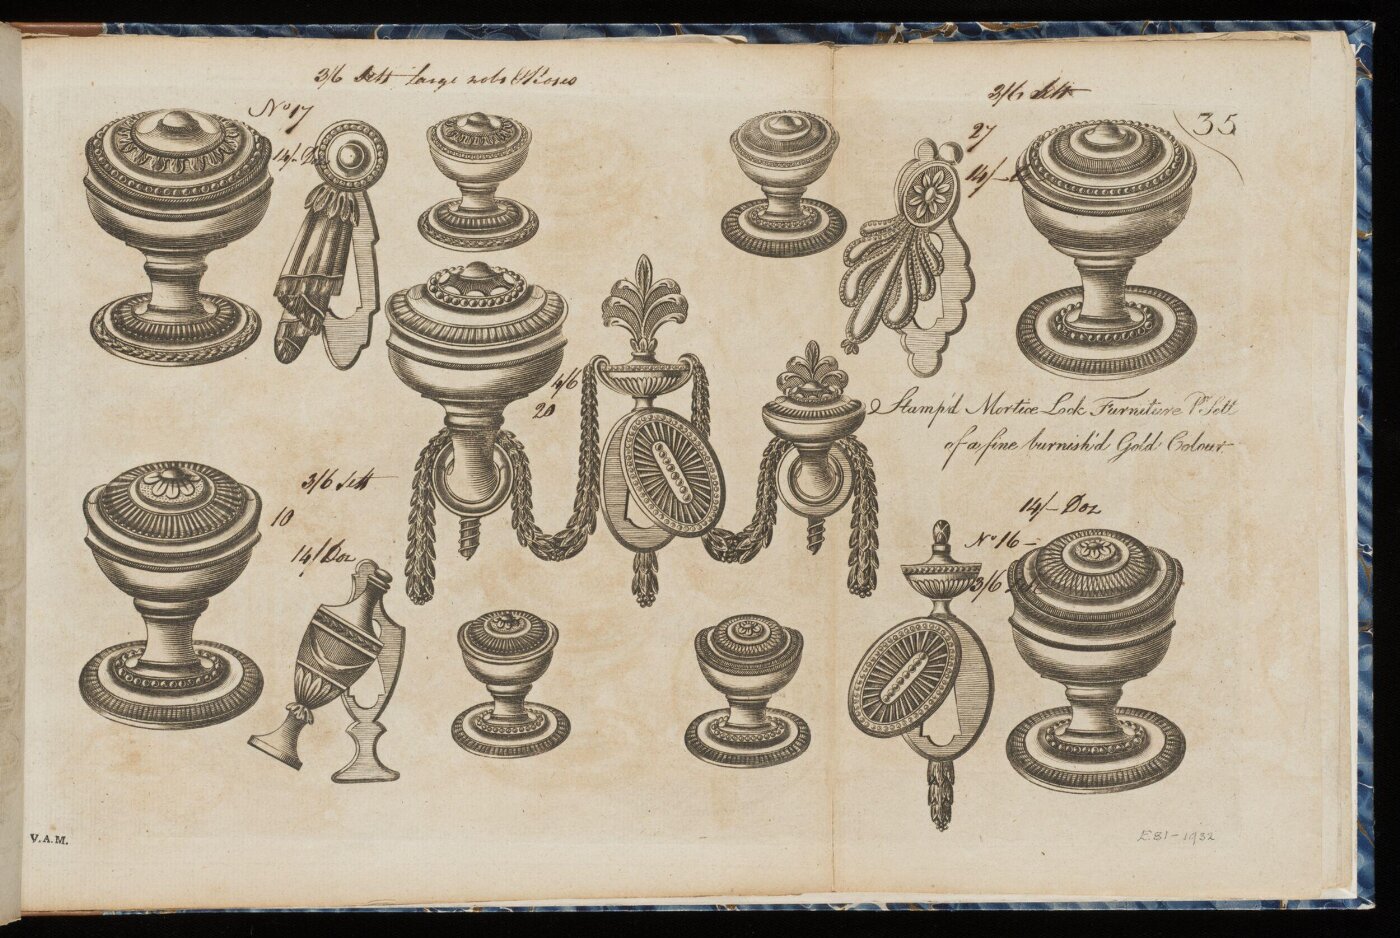 3/6 Sett large nobs & Roses
3/6 Sett
No 17
14/- Dz
27
14/-
35
4/6
20
Stamp'd Mortice Lock Furniture Pr. Sett
of a fine burnish'd Gold Colour
3/6 Sett
10
14/ Doz
14/- Doz
No 16 -
3/6
V.A.M.
E.81-1932